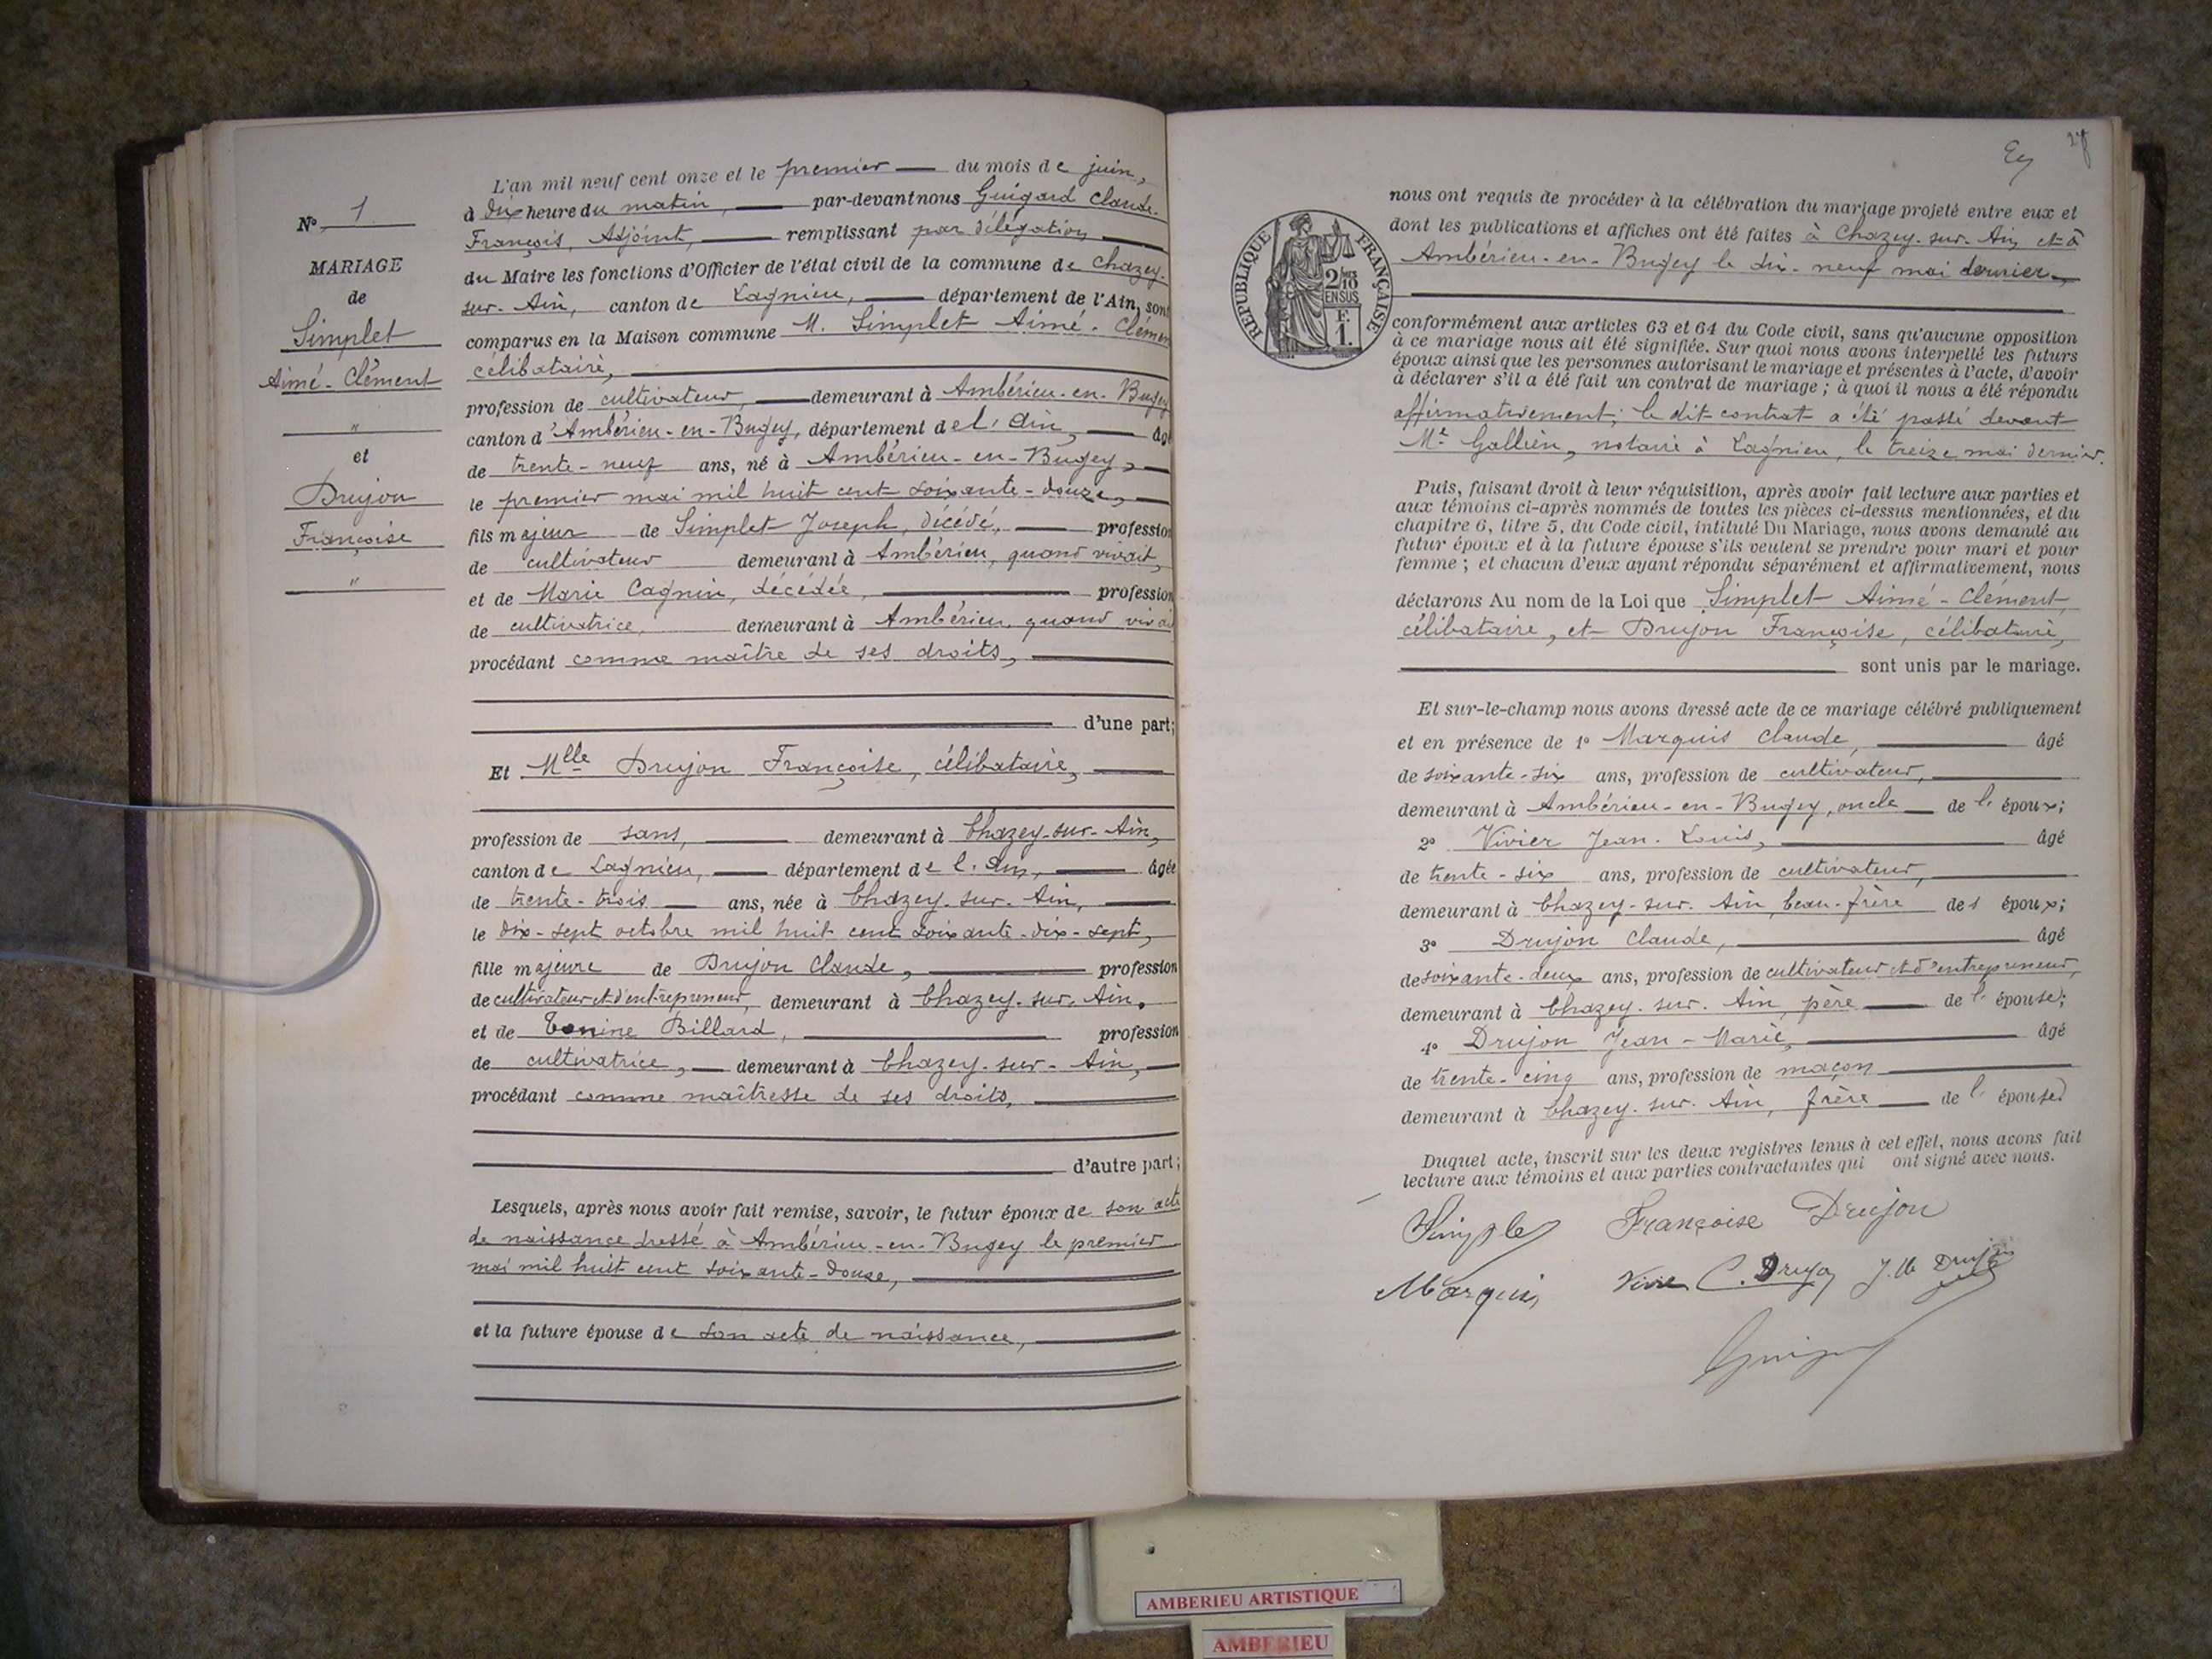 N° 1
MARIAGE
de
Simplet
Aimé-Clément
"
et
Drujon
Françoise
"
L'an mil neuf cent onze et le premier du mois de juin,
à dix heure du matin, par-devant nous Guigard Claude-
François, Adjoint, remplissant par délégation
du Maire les fonctions d'Officier de l'état civil de la commune de Chazey-
sur-Ain, canton de Lagnieu, département de l'Ain, sont
comparus en la Maison commune M. Simplet Aimé-Clémen
célibataire,
profession de cultivateur, demeurant à Ambérieu-en-Bugey
canton d'Ambérieu-en-Bugey, département de l'Ain, âgé
de trente-neuf ans, né à Ambérieu-en-Bugey,
le premier mai mil huit cent soixante-douze,
fils majeur de Simplet Joseph, décédé, profession
de cultivateur demeurant à Ambérieu, quand vivait,
et de Marie Cagnin, décédée, profession
de cultivatrice, demeurant à Ambérieu, quand vivai
procédant comme maître de ses droits,
d'une part;
Et Mlle Drujon Françoise, célibataire,
profession de sans, demeurant à Chazey-sur-Ain,
canton de Lagnieu, département de l'Ain, âgée
de trente-trois ans, née à Chazey-sur-Ain,
le dix-sept octobre mil huit cent soixante-dix-sept,
fille majeure de Drujon Claude, profession
de cultivateur et d'entrepreneur, demeurant à Chazey-sur-Ain,
et de Billard, profession
de cultivatrice, demeurant à Chazey-sur-Ain,
procédant comme maîtresse de ses droits,
d'autre part;
Lesquels, après nous avoir fait remise, savoir, le futur époux de son acte
de naissance dressé à Ambérieu-en-Bugey le premier
mai mil huit cent soixante-douze,
et la future épouse de son acte de naissance,
REPUBLIQUE FRANÇAISE
2/10
EN SUS
F.
1.
nous ont requis de procéder à la célébration du mariage projeté entre eux et
dont les publications et affiches ont été faites à Chazey-sur-Ain et à
Ambérieu-en-Bugey le dix-neuf mai dernier,
conformément aux articles 63 et 64 du Code civil, sans qu'aucune opposition
à ce mariage nous ait été signifiée. Sur quoi nous avons interpellé les futurs
époux ainsi que les personnes autorisant le mariage et présentes à l'acte, d'avoir
à déclarer s'il a été fait un contrat de mariage; à quoi il nous a été répondu
affirmativement; le dit contrat a été passé devant
Me Gallien, notaire à Lagnieu, le treize mai dernier.
Puis, faisant droit à leur réquisition, après avoir fait lecture aux parties et
aux témoins ci-après nommés de toutes les pièces ci-dessus mentionnées, et du
chapitre 6, titre 5, du Code civil, intitulé Du Mariage, nous avons demandé au
futur époux et à la future épouse s'ils veulent se prendre pour mari et pour
femme; et chacun d'eux ayant répondu séparément et affirmativement, nous
déclarons Au nom de la Loi que Simplet Aimé-Clément,
célibataire, et Drujon Françoise, célibataire,
sont unis par le mariage.
Et sur-le-champ nous avons dressé acte de ce mariage célébré publiquement
et en présence de 1° Marquis Claude, âgé
de soixante-six ans, profession de cultivateur,
demeurant à Ambérieu-en-Bugey, oncle de l'époux;
2° Vivier Jean-Louis, âgé
de trente-six ans, profession de cultivateur,
demeurant à Chazey-sur-Ain, beau-frère des époux;
3° Drujon Claude, âgé
de soixante-deux ans, profession de cultivateur et d'entrepreneur,
demeurant à Chazey-sur-Ain, père de l'épouse;
4° Drujon Jean-Marie, âgé
de trente-cinq ans, profession de maçon
demeurant à Chazey-sur-Ain, frère de l'épouse
Duquel acte, inscrit sur les deux registres tenus à cet effet, nous avons fait
lecture aux témoins et aux parties contractantes qui ont signé avec nous.
Simplet Françoise Drujon
Marquis Vivier C. Drujon J. M Drujon
AMBERIEU ARTISTIQUE
AMBERIEU